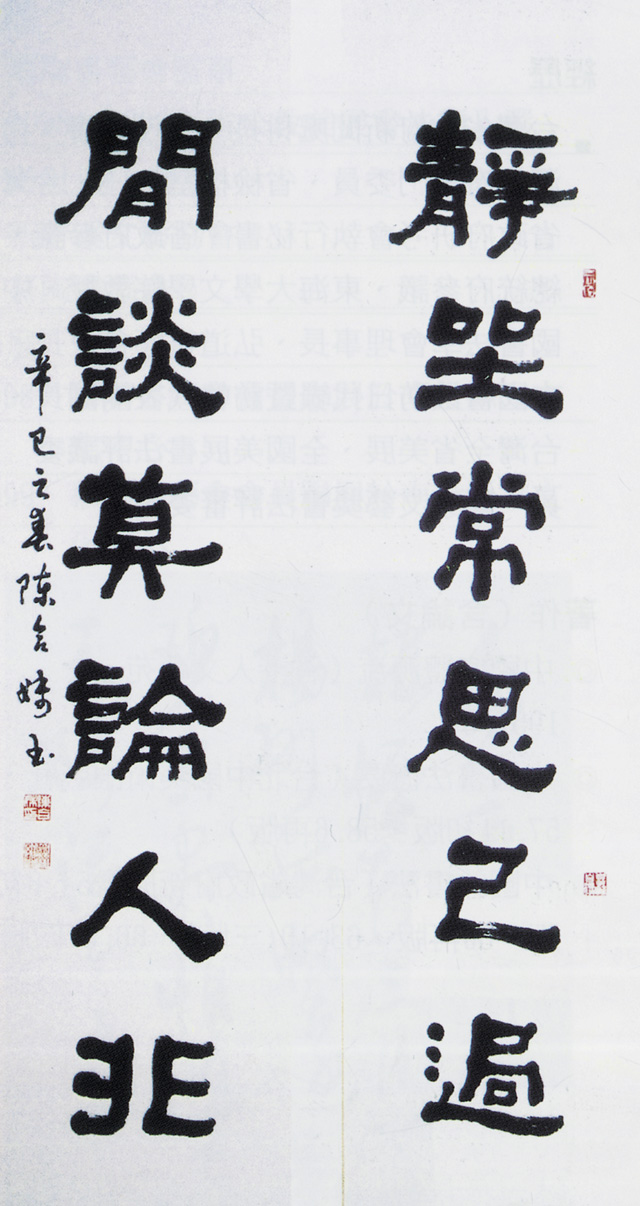 靜坐常思己過
閒談莫論人非
辛巳之春陳合